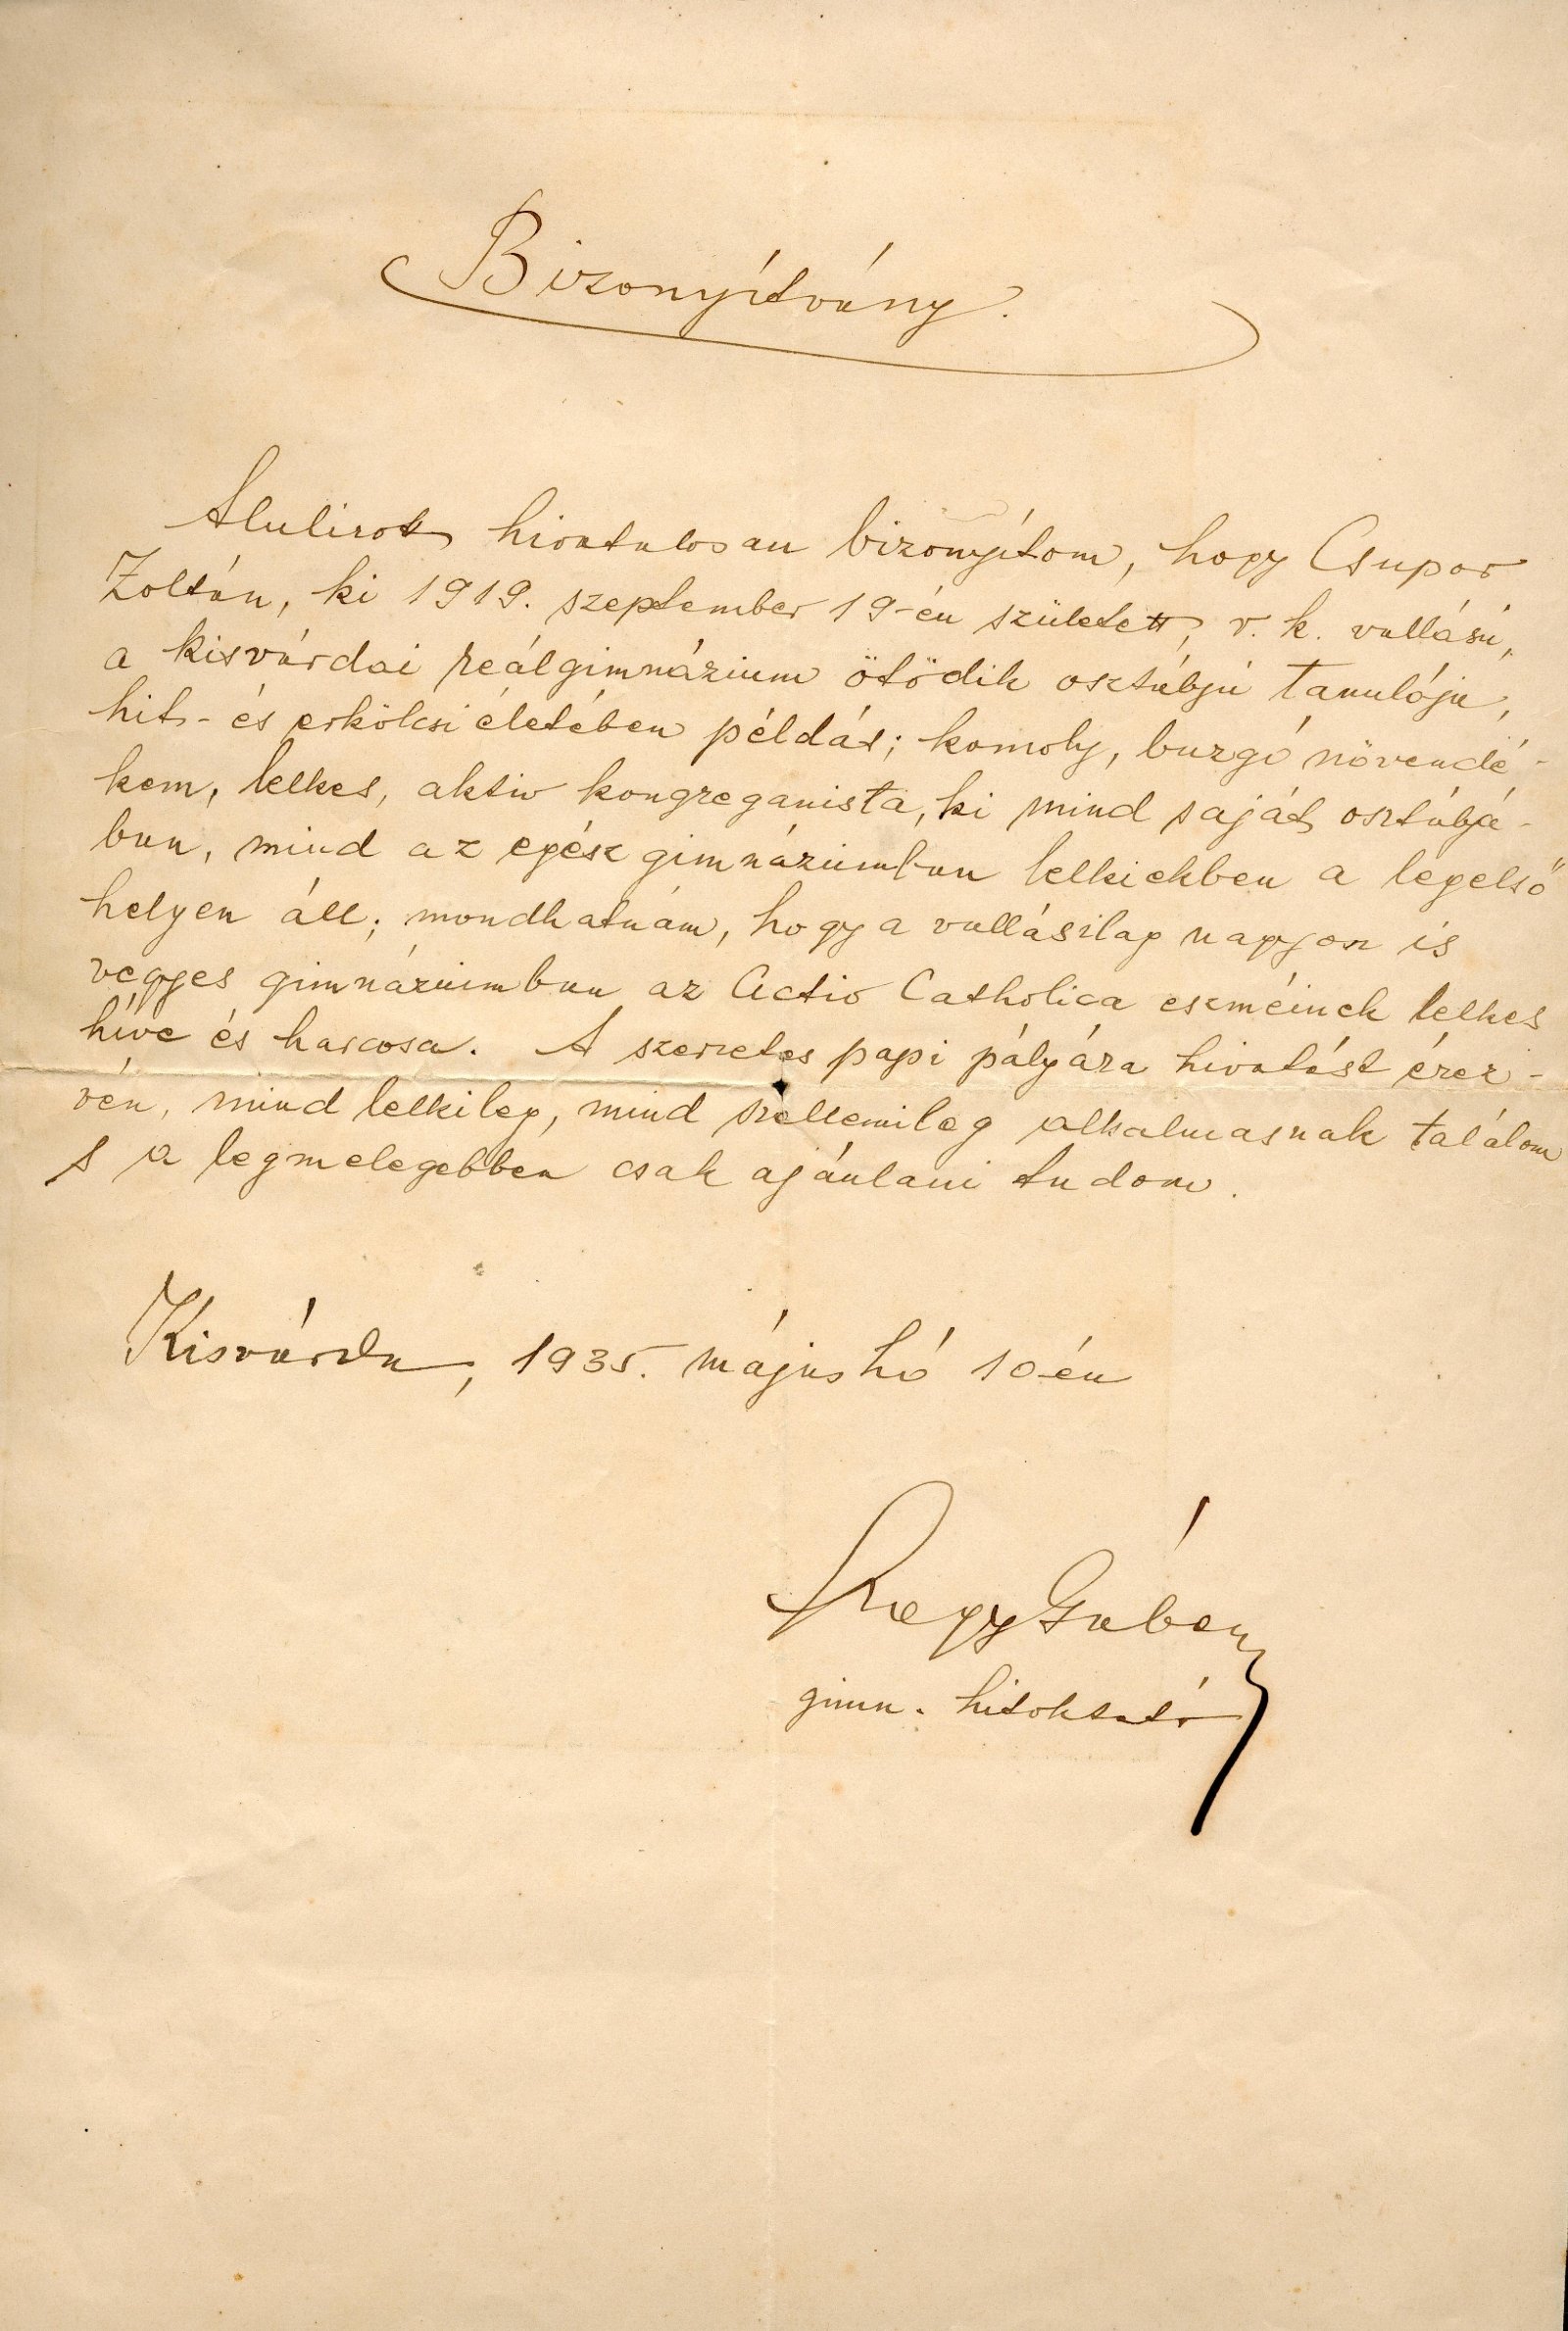 Bizonyítvány.
Alulírott hivatalosan bizonyítom, hogy Csupor
Zoltán, ki 1919. szeptember 19-én született, r. k. vallású,
a kisvárdai reálgimnázium ötödik osztályú tanulója,
hit- és erkölcsi életében példás; komoly, buzgó növendé-
kem, lelkes, aktiv kongreganista, ki mind saját osztályá-
ban, mind az egész gimnáziumban lelkiekben a legelső
helyen áll; mondhatnám, hogy a vallásilag nagyon is
vegyes gimnáziumban az Actio Catholica eszméinek lelkes
híve és harcosa. A szerzetes papi pályára hivatást érez-
vén, mind lelkileg, mind szellemileg alkalmasnak találom
s a legmelegebben csak ajánlani tudom.
Kisvárda, 1935. május hó 10-én
gimn. hitoktató